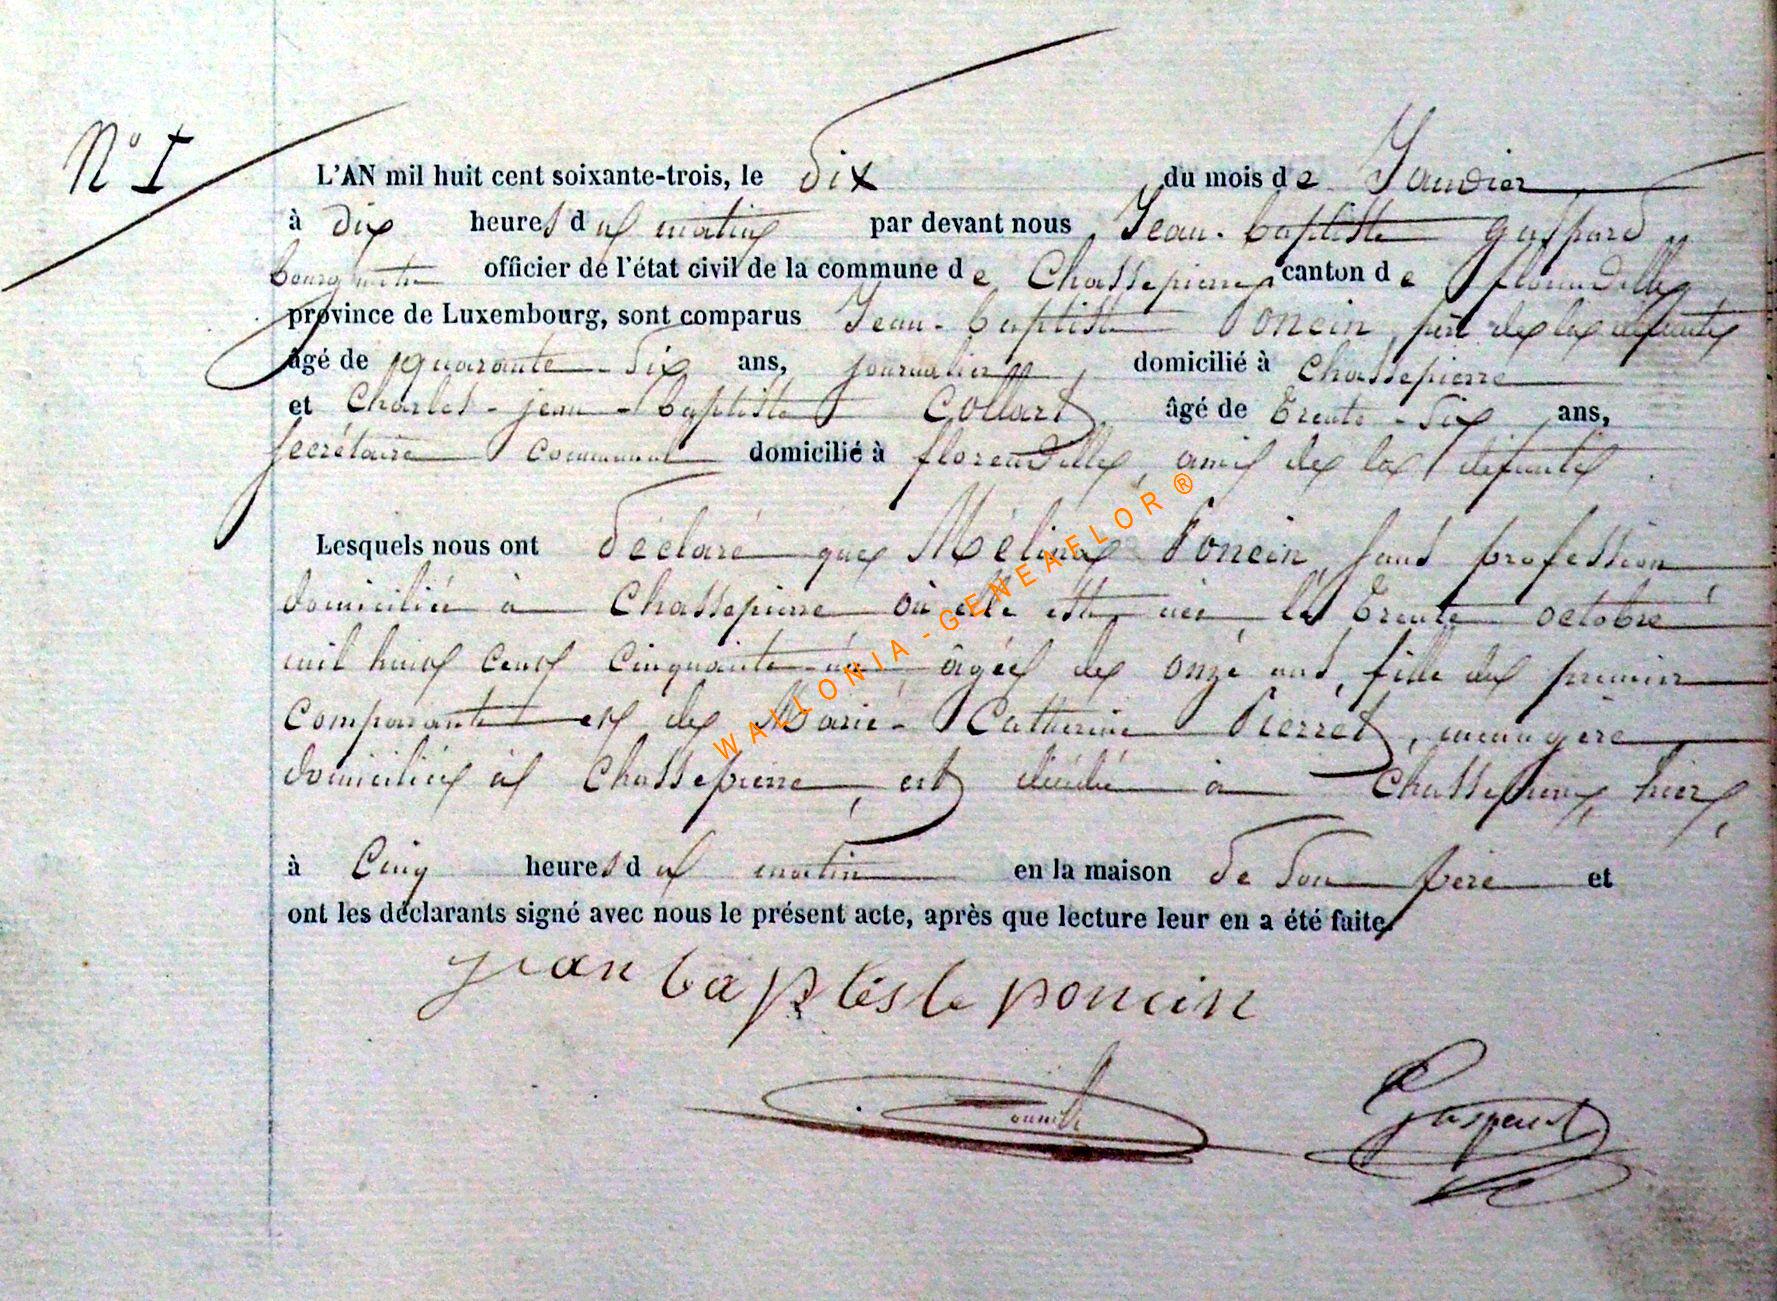 N° I
L'AN mil huit cent soixante-trois, le dix du mois de Janvier
à dix heures du matin par devant nous Jean-baptiste gaspard
bourgmestre officier de l'état civil de la commune de Chassepierre canton de florenville
province de Luxembourg, sont comparus Jean-baptiste Poncin, père de la défunte
âgé de quarante-six ans, journalier, domicilié à Chassepierre
et Charles-jean-baptiste Collart âgé de trente-six ans,
secrétaire communal domicilié à florenville, ami de la défunte.
Lesquels nous ont déclaré que Mélina Poncin, sans profession,
domiciliée à Chassepierre où elle est née, le trente octobre
mil huit cent cinquante-un, âgée de onze ans, fille du premier
comparant et de Marie-Catherine Pierret, ménagère,
domiciliée à Chassepierre, est décédée à Chassepierre, hier,
à cinq heures du matin en la maison de son père et
ont les déclarants signé avec nous le présent acte, après que lecture leur en a été faite.
jean baptiste poncin
Gaspard
WALLONIA-GENEAFLOR ®